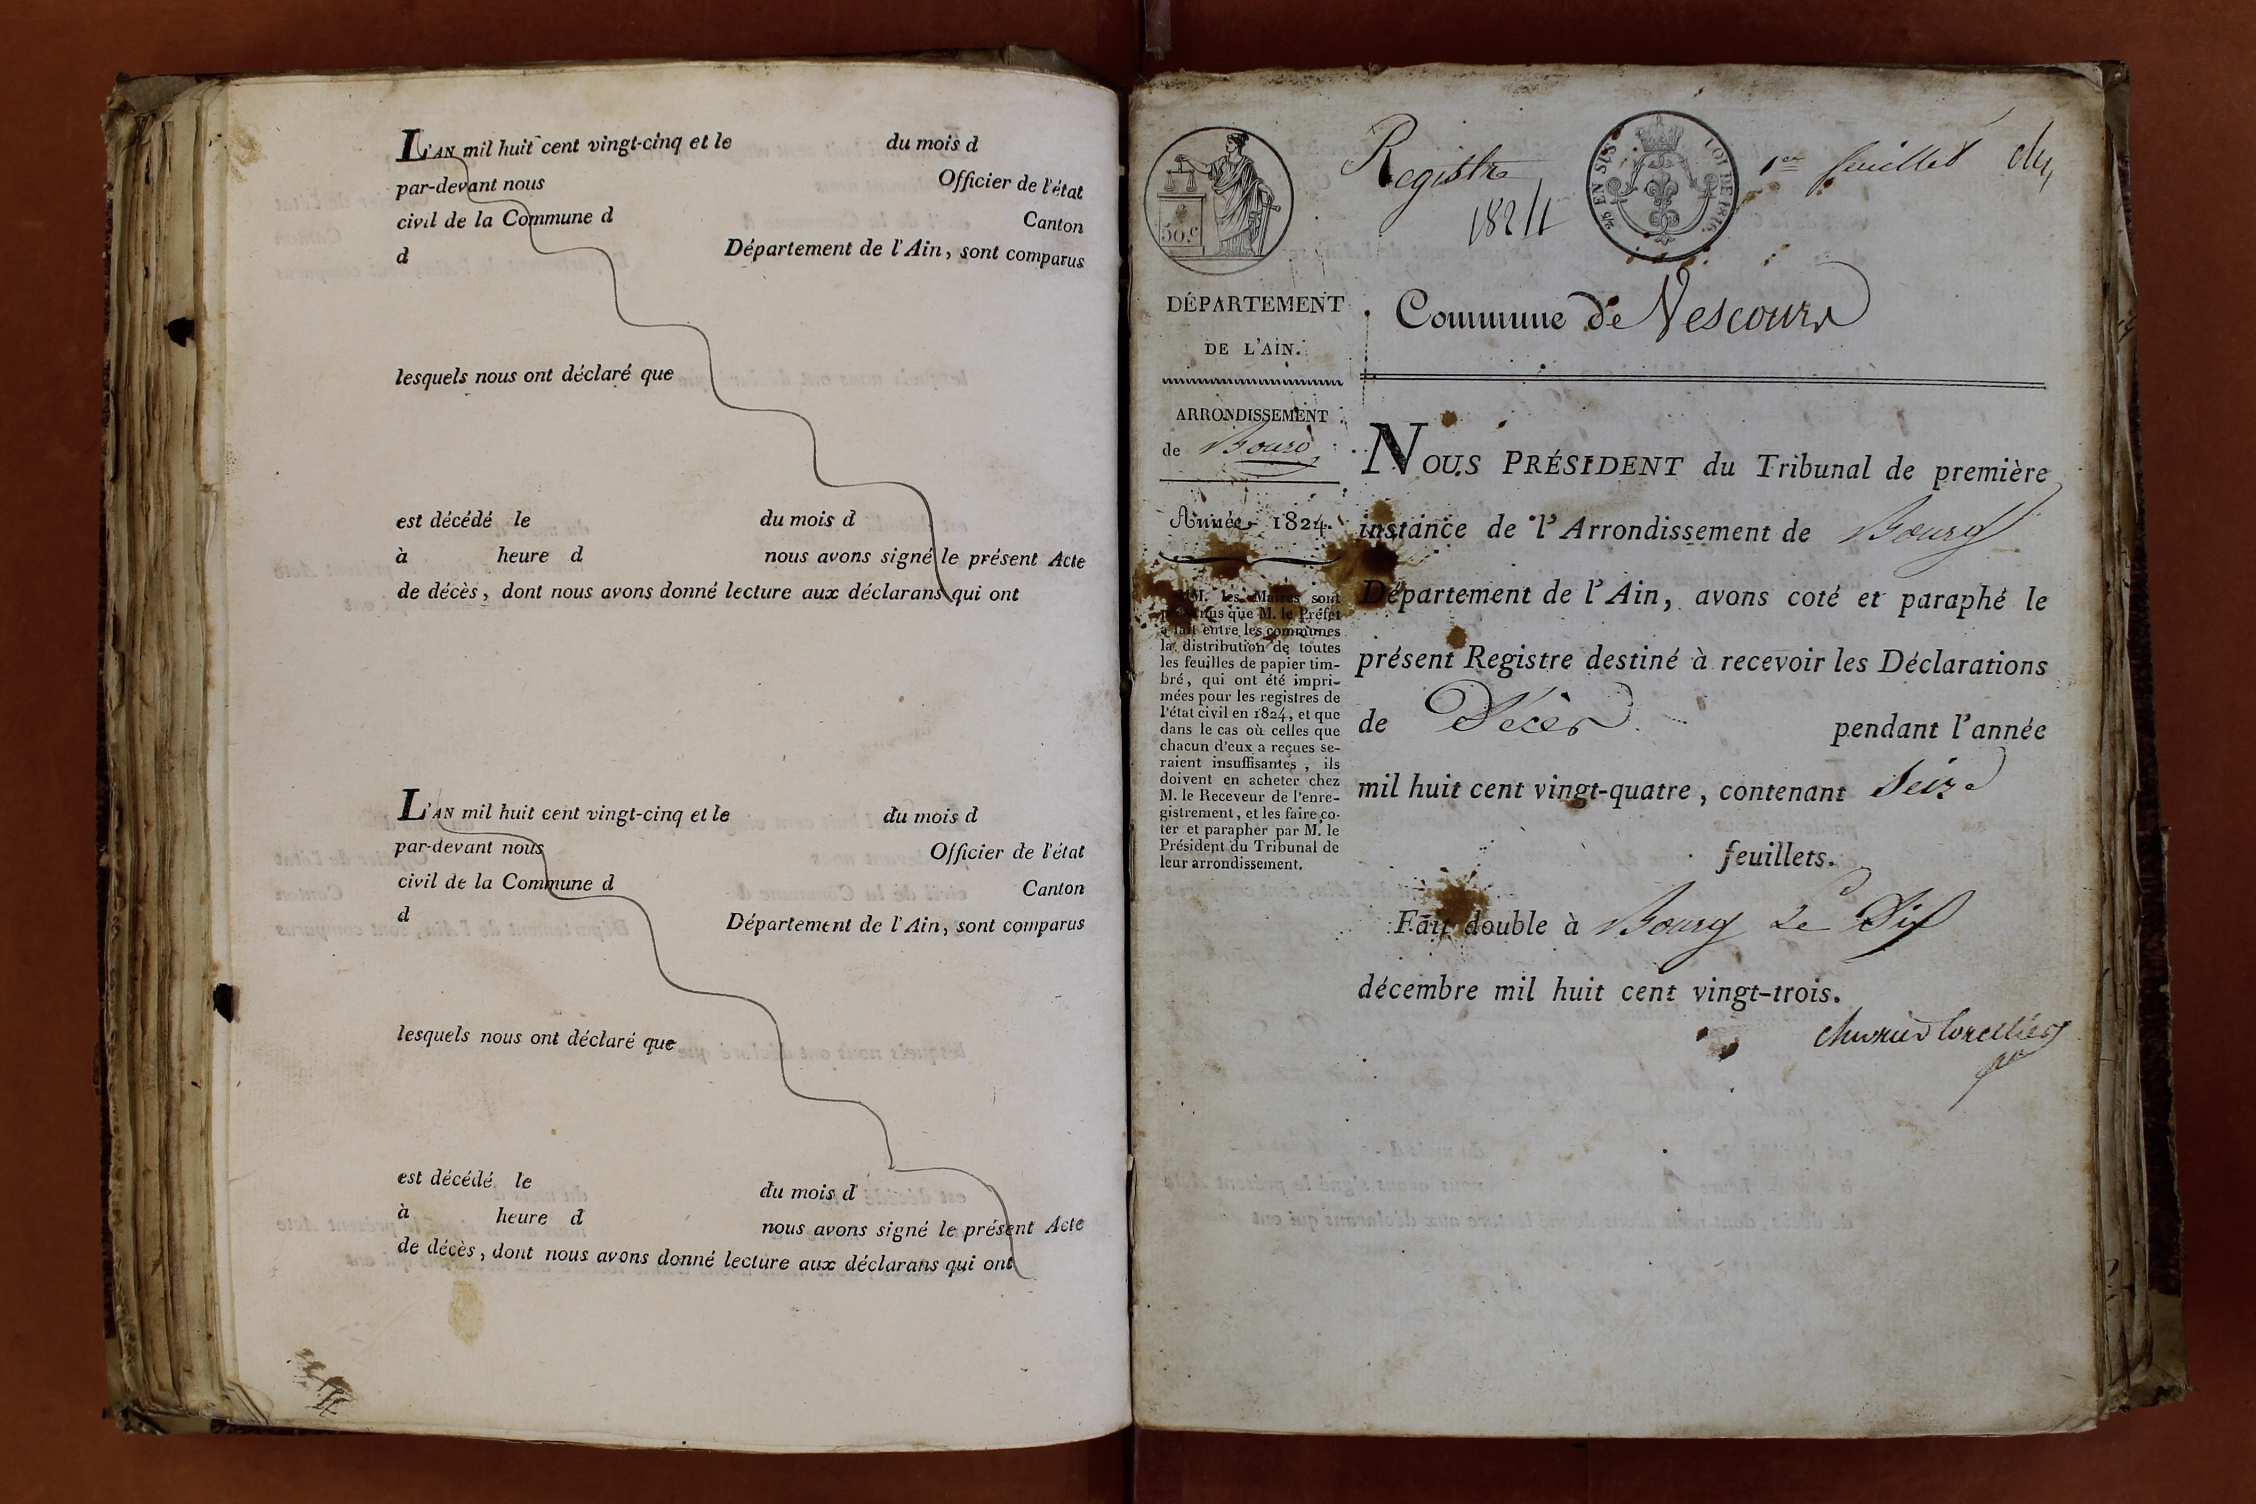 L'AN mil huit cent vingt-cinq et le du mois d
par-devant nous Officier de l'état
civil de la Commune d Canton
d Département de l'Ain, sont comparus
lesquels nous ont déclaré que
est décédé le du mois d
à heure d nous avons signé le présent Acte
de décès, dont nous avons donné lecture aux déclarans qui ont
L'AN mil huit cent vingt-cinq et le du mois d
par-devant nous Officier de l'état
civil de la Commune d Canton
d Département de l'Ain, sont comparus
lesquels nous ont déclaré que
est décédé le du mois d
à heure d nous avons signé le présent Acte
de décès, dont nous avons donné lecture aux déclarans qui ont
50.c
Registre
1824
EN SUS
LOI DE 1816.
1er feuillet
DÉPARTEMENT
DE L'AIN.
ARRONDISSEMENT
de Bourg
Année 1824.
MM. les Maires sont
prévenus que M. le Préfet
a fait entre les communes
la distribution de toutes
les feuilles de papier tim-
bré, qui ont été impri-
mées pour les registres de
l'état civil en 1824, et que
dans le cas où celles que
chacun d'eux a reçues se-
raient insuffisantes, ils
doivent en acheter chez
M. le Receveur de l'enre-
gistrement, et les faire co-
ter et parapher par M. le
Président du Tribunal de
leur arrondissement.
Commune de Vescours
NOUS PRÉSIDENT du Tribunal de première
instance de l'Arrondissement de Bourg
Département de l'Ain, avons coté et paraphé le
présent Registre destiné à recevoir les Déclarations
de Décès pendant l'année
mil huit cent vingt-quatre, contenant Seize
feuillets.
Fait double à Bourg Le Dix
décembre mil huit cent vingt-trois.